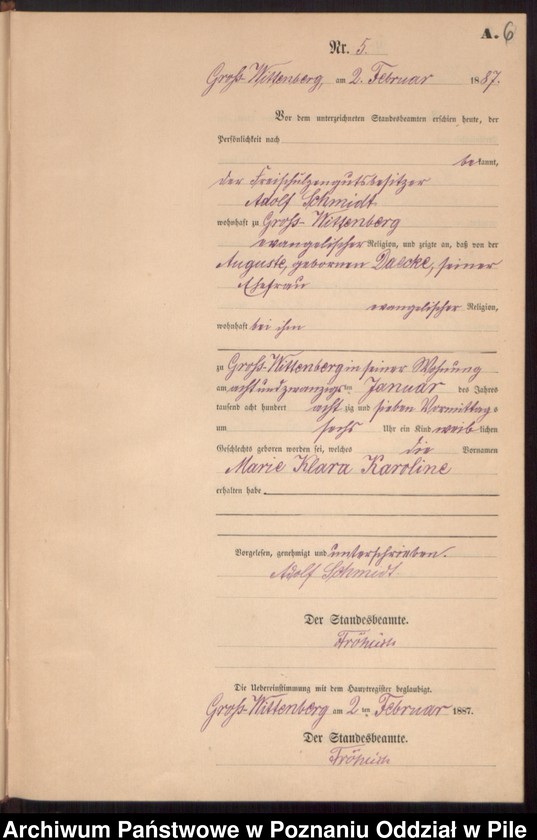 A. 6
Nr. 5.
Groß-Wittenberg, am 2. Februar 1887.
Vor dem unterzeichneten Standesbeamten erschien heute, der
Persönlichkeit nach
bekannt,
der Freischulzengutsbesitzer
Adolf Schmidt
wohnhaft zu Groß-Wittenberg
evangelischer Religion, und zeigte an, daß von der
Auguste, gebornen Daecke, seiner
Ehefrau
evangelischer Religion,
wohnhaft bei ihm
zu Groß-Wittenberg in seiner Wohnung
am achtundzwanzigsten Januar des Jahres
tausend acht hundert achtzig und sieben Vormittags
um sechs Uhr ein Kind weiblichen
Geschlechts geboren worden sei, welches die Vornamen
Marie Klara Karoline
erhalten habe
Vorgelesen, genehmigt und unterschrieben.
Adolf Schmidt
Der Standesbeamte.
Die Uebereinstimmung mit dem Hauptregister beglaubigt.
Groß-Wittenberg am 2ten Februar 1887.
Der Standesbeamte.
Archiwum Państwowe w Poznaniu Oddział w Pile